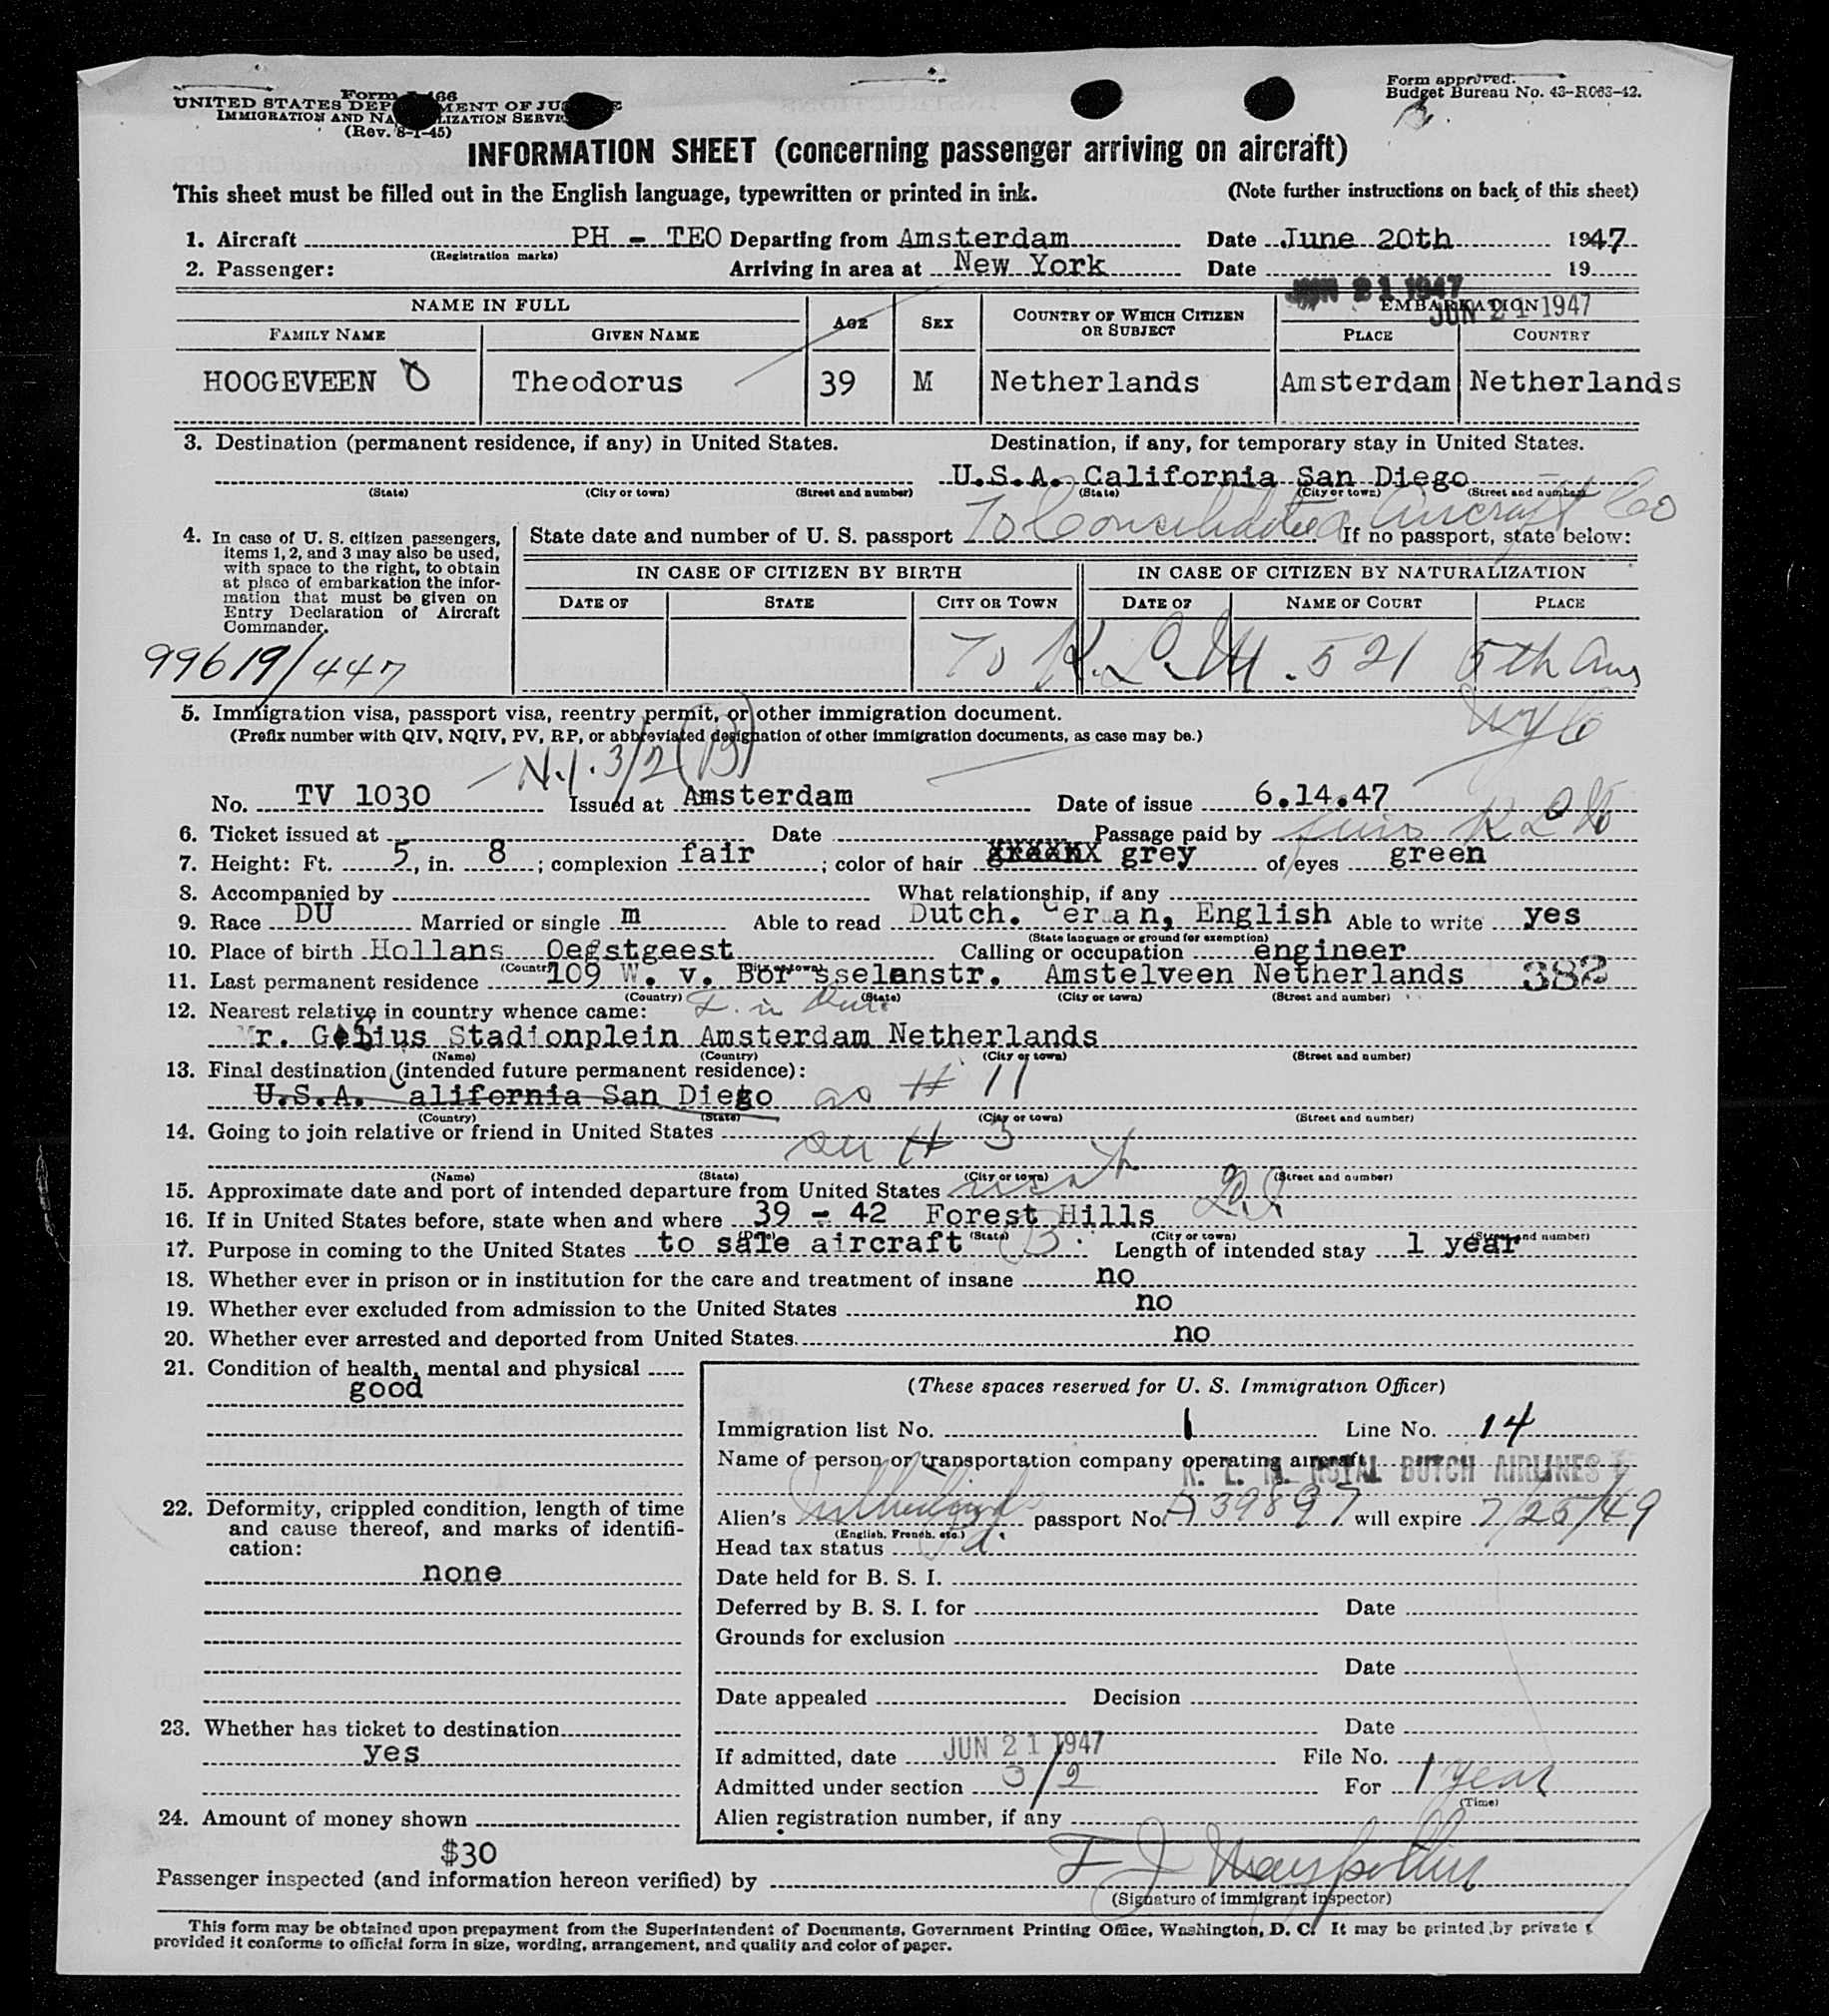 Form I-466
UNITED STATES DEPARTMENT OF JUSTICE
IMMIGRATION AND NATURALIZATION SERVICE
(Rev. 8-1-45)
Form approved.
Budget Bureau No. 43-R063-42.
INFORMATION SHEET (concerning passenger arriving on aircraft)
This sheet must be filled out in the English language, typewritten or printed in ink. (Note further instructions on back of this sheet)
1. Aircraft PH - TEO Departing from Amsterdam Date June 20th 1947
(Registration marks)
2. Passenger: Arriving in area at New York Date 19
JUN 21 1947
JUN 21 1947
NAME IN FULL AGE SEX COUNTRY OF WHICH CITIZEN OR SUBJECT EMBARKATION
FAMILY NAME GIVEN NAME PLACE COUNTRY
HOOGEVEEN Theodorus 39 M Netherlands Amsterdam Netherlands
3. Destination (permanent residence, if any) in United States. Destination, if any, for temporary stay in United States.
U.S.A. California San Diego
(State) (City or town) (Street and number) (State) (City or town) (Street and number)
To Consolidated Aircraft Co
4. In case of U. S. citizen passengers, items 1, 2, and 3 may also be used, with space to the right, to obtain at place of embarkation the information that must be given on Entry Declaration of Aircraft Commander.
State date and number of U. S. passport If no passport, state below:
IN CASE OF CITIZEN BY BIRTH IN CASE OF CITIZEN BY NATURALIZATION
DATE OF STATE CITY OR TOWN DATE OF NAME OF COURT PLACE
99619/447
To K.L.M. 521 5th Ave
NYC
5. Immigration visa, passport visa, reentry permit, or other immigration document.
(Prefix number with QIV, NQIV, PV, RP, or abbreviated designation of other immigration documents, as case may be.)
N.I. 3/2 (B)
No. TV 1030 Issued at Amsterdam Date of issue 6.14.47
6. Ticket issued at Date Passage paid by KLM
7. Height: Ft. 5, in. 8; complexion fair; color of hair grey of eyes green
8. Accompanied by What relationship, if any
9. Race DU Married or single m Able to read Dutch. German, English Able to write yes
(State language or ground for exemption)
10. Place of birth Hollans Oegstgeest Calling or occupation engineer
(Country) (City or town)
11. Last permanent residence 109 W. v. Borsselenstr. Amstelveen Netherlands 382
(Country) (State) (City or town) (Street and number)
12. Nearest relative in country whence came:
Mr. Gebius Stadionplein Amsterdam Netherlands
(Name) (Country) (City or town) (Street and number)
13. Final destination (intended future permanent residence):
U.S.A. California San Diego as # 11
(Country) (State) (City or town) (Street and number)
14. Going to join relative or friend in United States
# 3
(Name) (State) (City or town) (Street and number)
15. Approximate date and port of intended departure from United States
16. If in United States before, state when and where 39 - 42 Forest Hills L.I.
(Date) (State) (City or town) (Street and number)
17. Purpose in coming to the United States to sale aircraft B. Length of intended stay 1 year
18. Whether ever in prison or in institution for the care and treatment of insane no
19. Whether ever excluded from admission to the United States no
20. Whether ever arrested and deported from United States no
21. Condition of health, mental and physical
good
22. Deformity, crippled condition, length of time and cause thereof, and marks of identification:
none
23. Whether has ticket to destination
yes
24. Amount of money shown
$30
(These spaces reserved for U. S. Immigration Officer)
Immigration list No. 1 Line No. 14
Name of person or transportation company operating aircraft
K. L. M. ROYAL DUTCH AIRLINES
Alien's Netherlands passport No. A 39897 will expire 7/25/49
(English, French, etc.)
Head tax status
Date held for B. S. I.
Deferred by B. S. I. for Date
Grounds for exclusion
Date
Date appealed Decision
Date
If admitted, date JUN 21 1947 File No.
Admitted under section 3/2 For 1 year
(Time)
Alien registration number, if any
Passenger inspected (and information hereon verified) by
(Signature of immigrant inspector)
This form may be obtained upon prepayment from the Superintendent of Documents, Government Printing Office, Washington, D. C. It may be printed by private
provided it conforms to official form in size, wording, arrangement, and quality and color of paper.